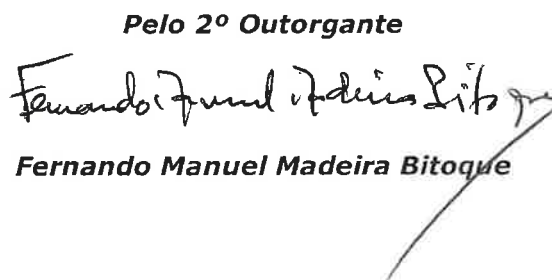 Pelo 2º Outorgante
Fernando Manuel Madeira Bitoque
Fernando Manuel Madeira Bitoque